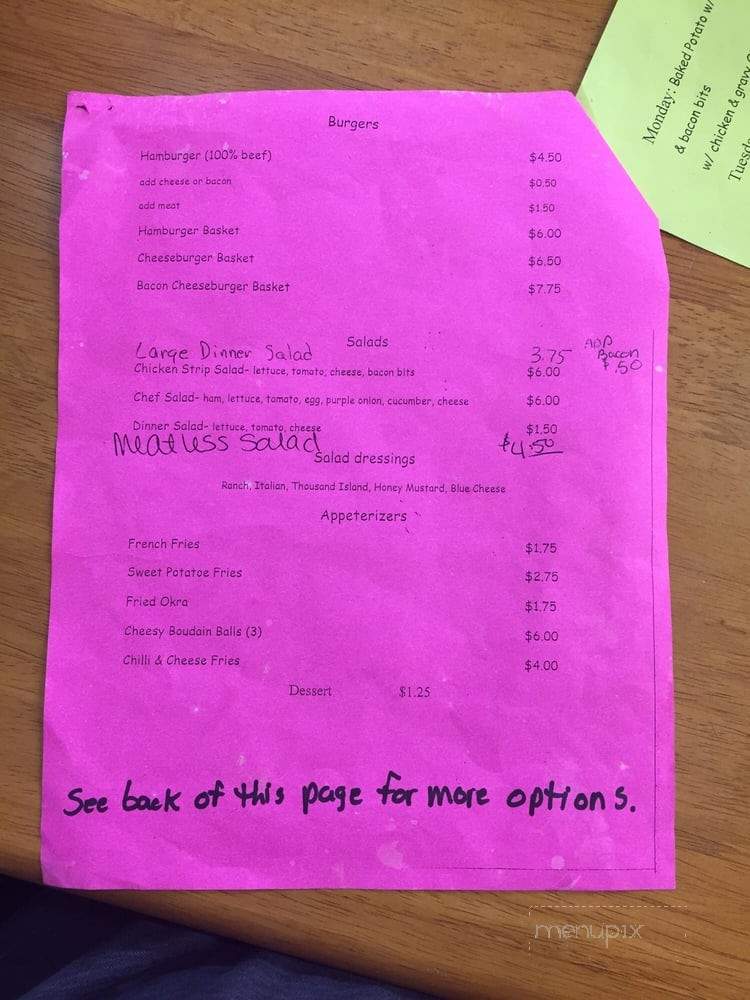 Burgers
Hamburger (100% beef) $4.50
add cheese or bacon $0.50
add meat $1.50
Hamburger Basket $6.00
Cheeseburger Basket $6.50
Bacon Cheeseburger Basket $7.75
Salads
Large Dinner Salad 3.75 ADD Bacon $.50
Chicken Strip Salad- lettuce, tomato, cheese, bacon bits $6.00
Chef Salad- ham, lettuce, tomato, egg, purple onion, cucumber, cheese $6.00
Dinner Salad- lettuce, tomato, cheese $1.50
Meatless Salad $4.50
Salad dressings
Ranch, Italian, Thousand Island, Honey Mustard, Blue Cheese
Appeterizers
French Fries $1.75
Sweet Potatoe Fries $2.75
Fried Okra $1.75
Cheesy Boudain Balls (3) $6.00
Chilli & Cheese Fries $4.00
Dessert $1.25
See back of this page for more options.
Monday: Baked Potato w/
& bacon bits
w/ chicken & gravy
menupix